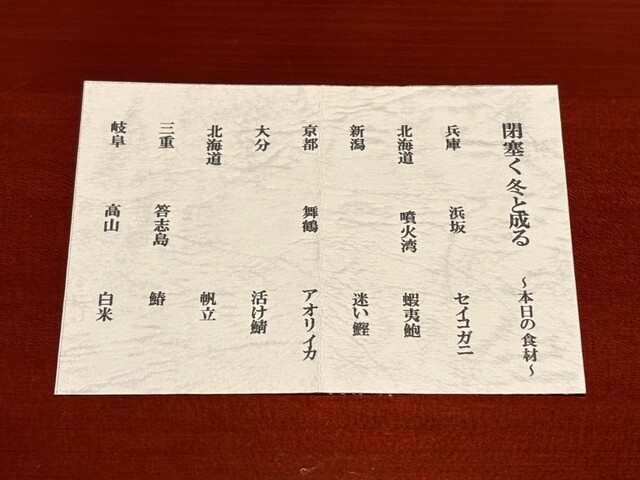 閉塞く冬と成る ～本日の食材～
兵庫 浜坂 セイコガニ
北海道 噴火湾 蝦夷鮑
新潟 迷い鰹
京都 舞鶴 アオリイカ
大分 活け鯖
北海道 帆立
三重 答志島 鰆
岐阜 高山 白米